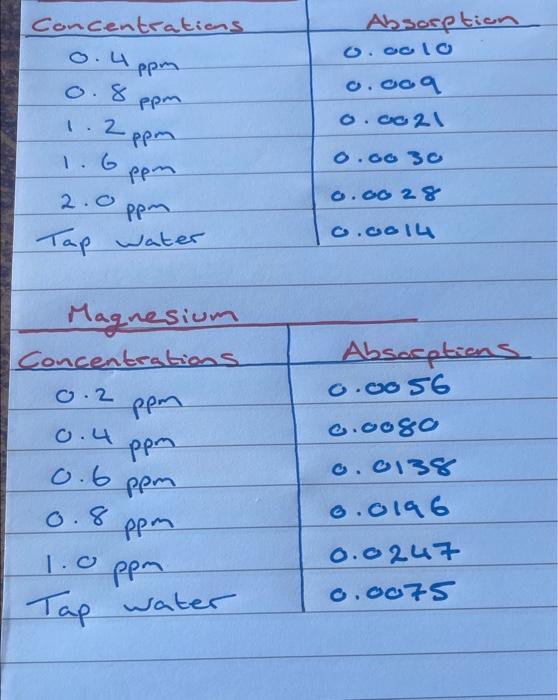 Concentrations Absorption
0.4 ppm 0.0010
0.8 ppm 0.009
1.2 ppm 0.0021
1.6 ppm 0.0030
2.0 ppm 0.0028
Tap water 0.0014
Magnesium
Concentrations Absorptions
0.2 ppm 0.0056
0.4 ppm 0.0080
0.6 ppm 0.0138
0.8 ppm 0.0196
1.0 ppm 0.0247
Tap water 0.0075